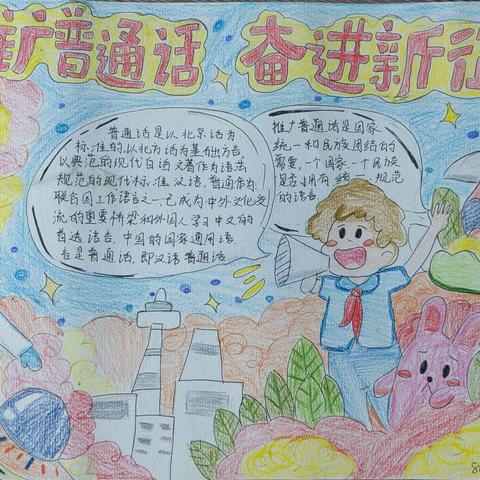 推广普通话 奋进新征
普通话是以北京话为
标准的,以北方话为基础方言,
以典范的现代白话文著作为语法
规范的现代标准汉语,普通作为
联合国工作语言之一,已成为中外文化交
流的重要桥梁和外国人学习中文的
首选语言。中国的国家通用语
言是普通话,即汉语普通话。
推广普通话是国家
统一和民族团结的
需要,一个国家一个民族
是否拥有统一、规范
的语言